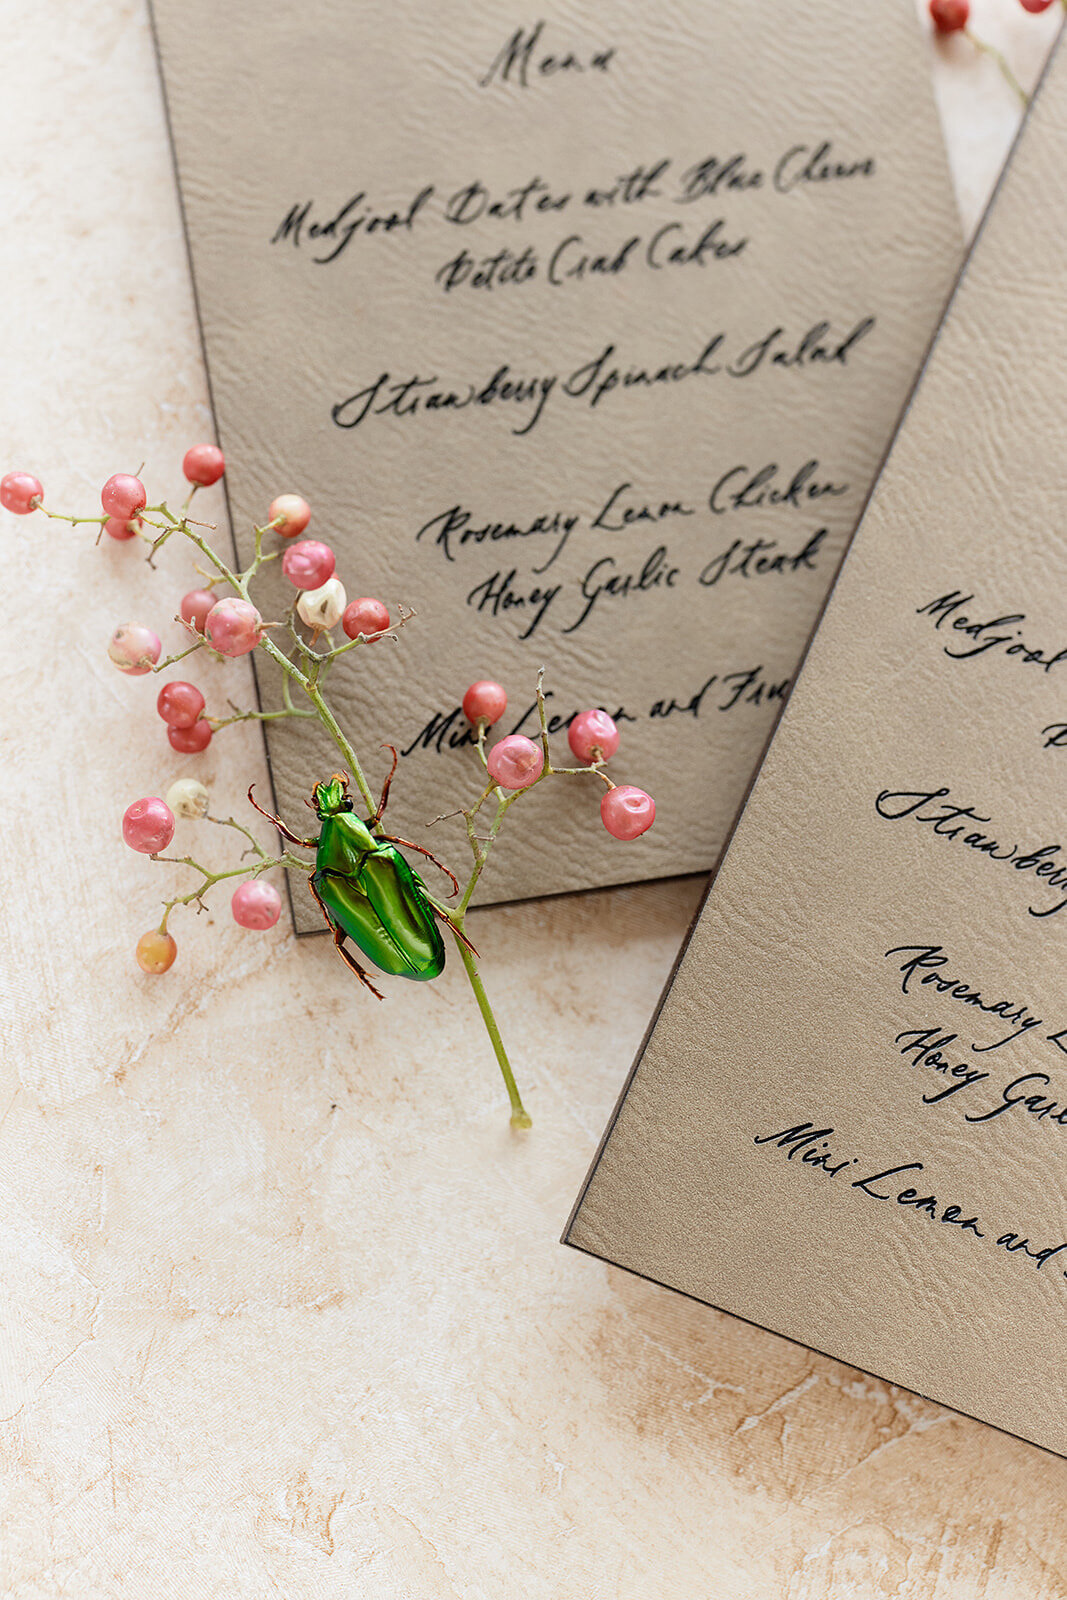 Menu
Medjool Dates with Blue Cheese
Petite Crab Cakes
Strawberry Spinach Salad
Rosemary Lemon Chicken
Honey Garlic Steak
Mini Lemon and
Medjool
Strawberry
Rosemary
Honey
Mini Lemon and